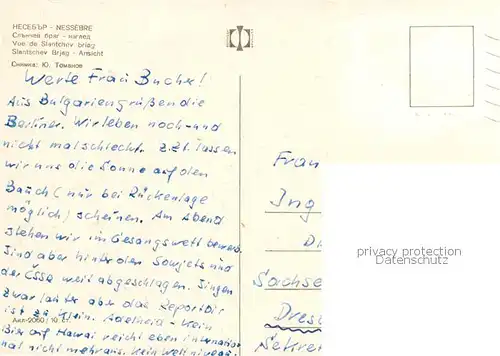 НЕСЕБЪР - NESSÈBRE
Слънчев бряг - изглед
Vue de Slantchev briag
Slantschev Brjag - Ansicht
Снимка: Ю. Томанов
Werte Frau Bucher!
Aus Bulgarien grüßen die
Berliner. Wir leben noch und
nicht mal schlecht. z.Zt. lassen
wir uns die Sonne auf den
Bauch (nur bei Rückenlage
möglich) scheinen. Am Abend
stehen wir im Gesangswettbewerb.
Sind aber hinter den Sowjets und
der ČSSR weit abgeschlagen. Singen
zwar lauter aber das Repertoir
ist zu klein. Adelheid - kein
Bier auf Hawai reicht eben internation
nal nicht mehr aus. Kein Weltniveau.
Акл-2060/10
Frau
Ing
Dr
Sachse
Dresd
Sekre
privacy protection
Datenschutz